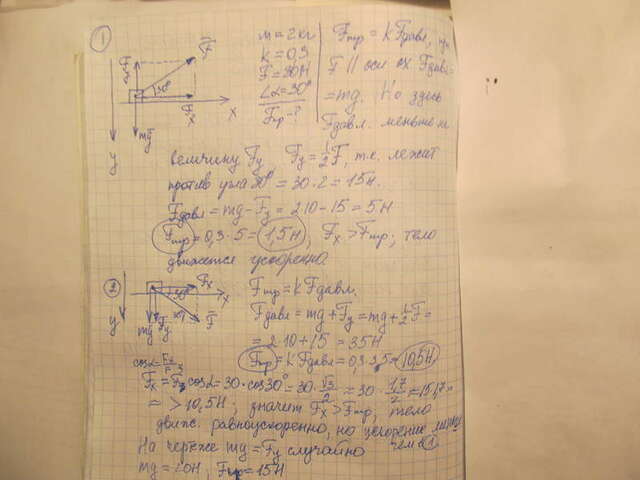 1
m = 2кг
k = 0,3
F = 30Н
∠α = 30°
Fтр - ?
Fтр = kFдавл, при
F ∥ оси ox Fдавл =
= mg. Но здесь
Fдавл. меньше н.
Fy
F
30°
Fx
x
mg
y
величину Fy. Fy = 1/2 F, т.к. лежит
против угла 30° = 30·2 = 15Н.
Fдавл = mg - Fy = 2·10 - 15 = 5Н
Fтр = 0,3·5 = 1,5Н, Fx > Fтр; тело
движется ускоренно.
2
Fx
30°
x
y
mg
Fy
F
Fтр = kFдавл.
Fдавл = mg + Fy = mg + 1/2 F =
= 2·10 + 15 = 35Н
Fтр = kFдавл = 0,3·35 = 10,5Н
cosα = Fx
Fx = F cosα = 30·cos30° = 30·√3/2 ≈ 30·1,7/2 = 15·1,7 =
≈ > 10,5Н; значит Fx > Fтр, тело
движ. равноускоренно, но ускорение
чем в 1
На чертеже mg = Fy случайно
mg = 20Н, Fтр = 15Н